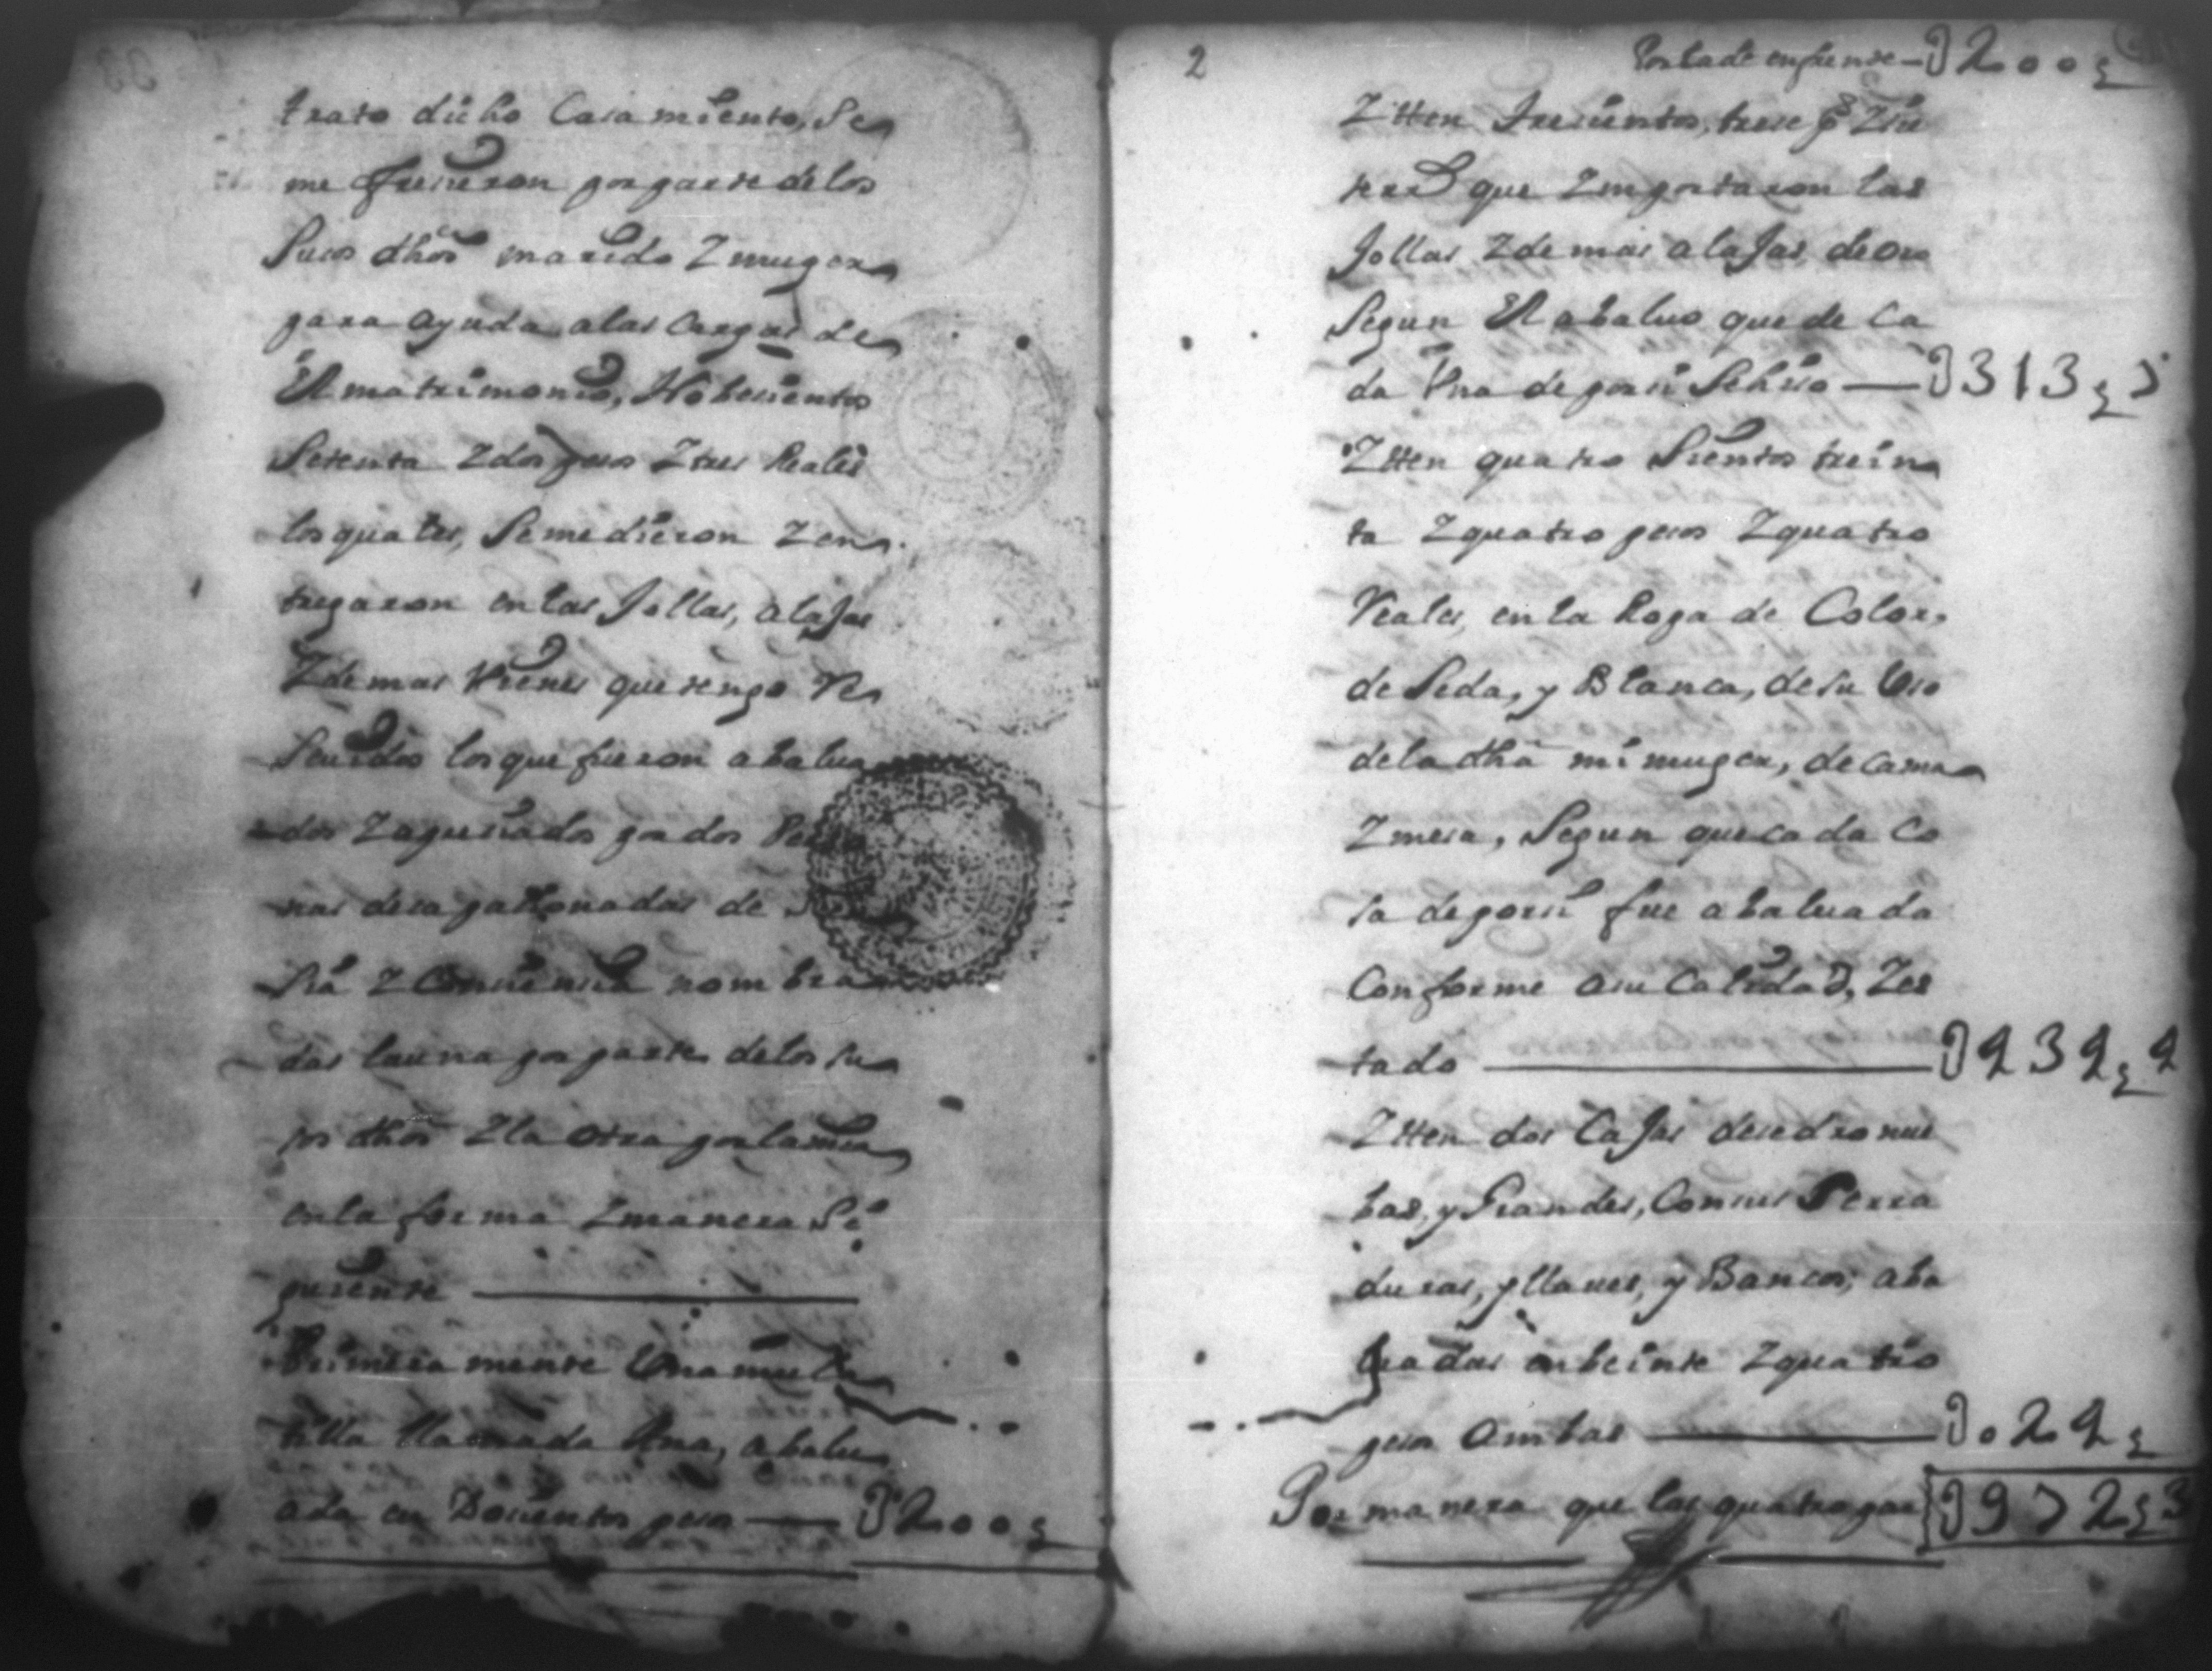 trato dicho Casamiento, Se
me ofrecieron por parte de los
Suso dhos marido Z muger
para ayuda a las Cargas de
El matrimonio, Nobecientos
Setenta Z dos pesos Z tres Reales
los quales, Se me dieron Z en
tregaron en las Jollas, alaJas
Z demas Vienes que tengo Re
Seuidos los que fueron abalua
dos Z apreciados por dos Perso
nas desapacionadas de
sia Z Conciencia nombra
das la una por parte de los su
sos dhos Z la otra por la mia
en la forma Z manera Si
guiente
Primera mente Una mula
tilla llamada Ana, abalu
ada en Docientos pesos — U200 p
2
Por la de enfrente — U200 p
Ztten Trecientos, trece ps Z sie
te rrs que Zmportaron las
Jollas Z demas alaJas de oro
Segun El abaluo que de Ca
da Vna de por si Se hiso — U313 p 7
Ztten quatro Sientos trein
ta Z quatro pesos Z quatro
Reales, en la Ropa de Color
de Seda, y Blanca, de su Uso
de la dha mi muger, de cama
Z mesa, Segun que cada Co
sa de por si fue abaluada
Conforme a su Calidad, Z es
tado — U434 p 4
Ztten dos CaJas de sedro nue
bas, y Grandes, Con sus Serra
duras, y llaues, y Bancos, aba
luadas en beinte Z quatro
pesos Ambas — U024 p
Por manera que las quatro par U972 p 3